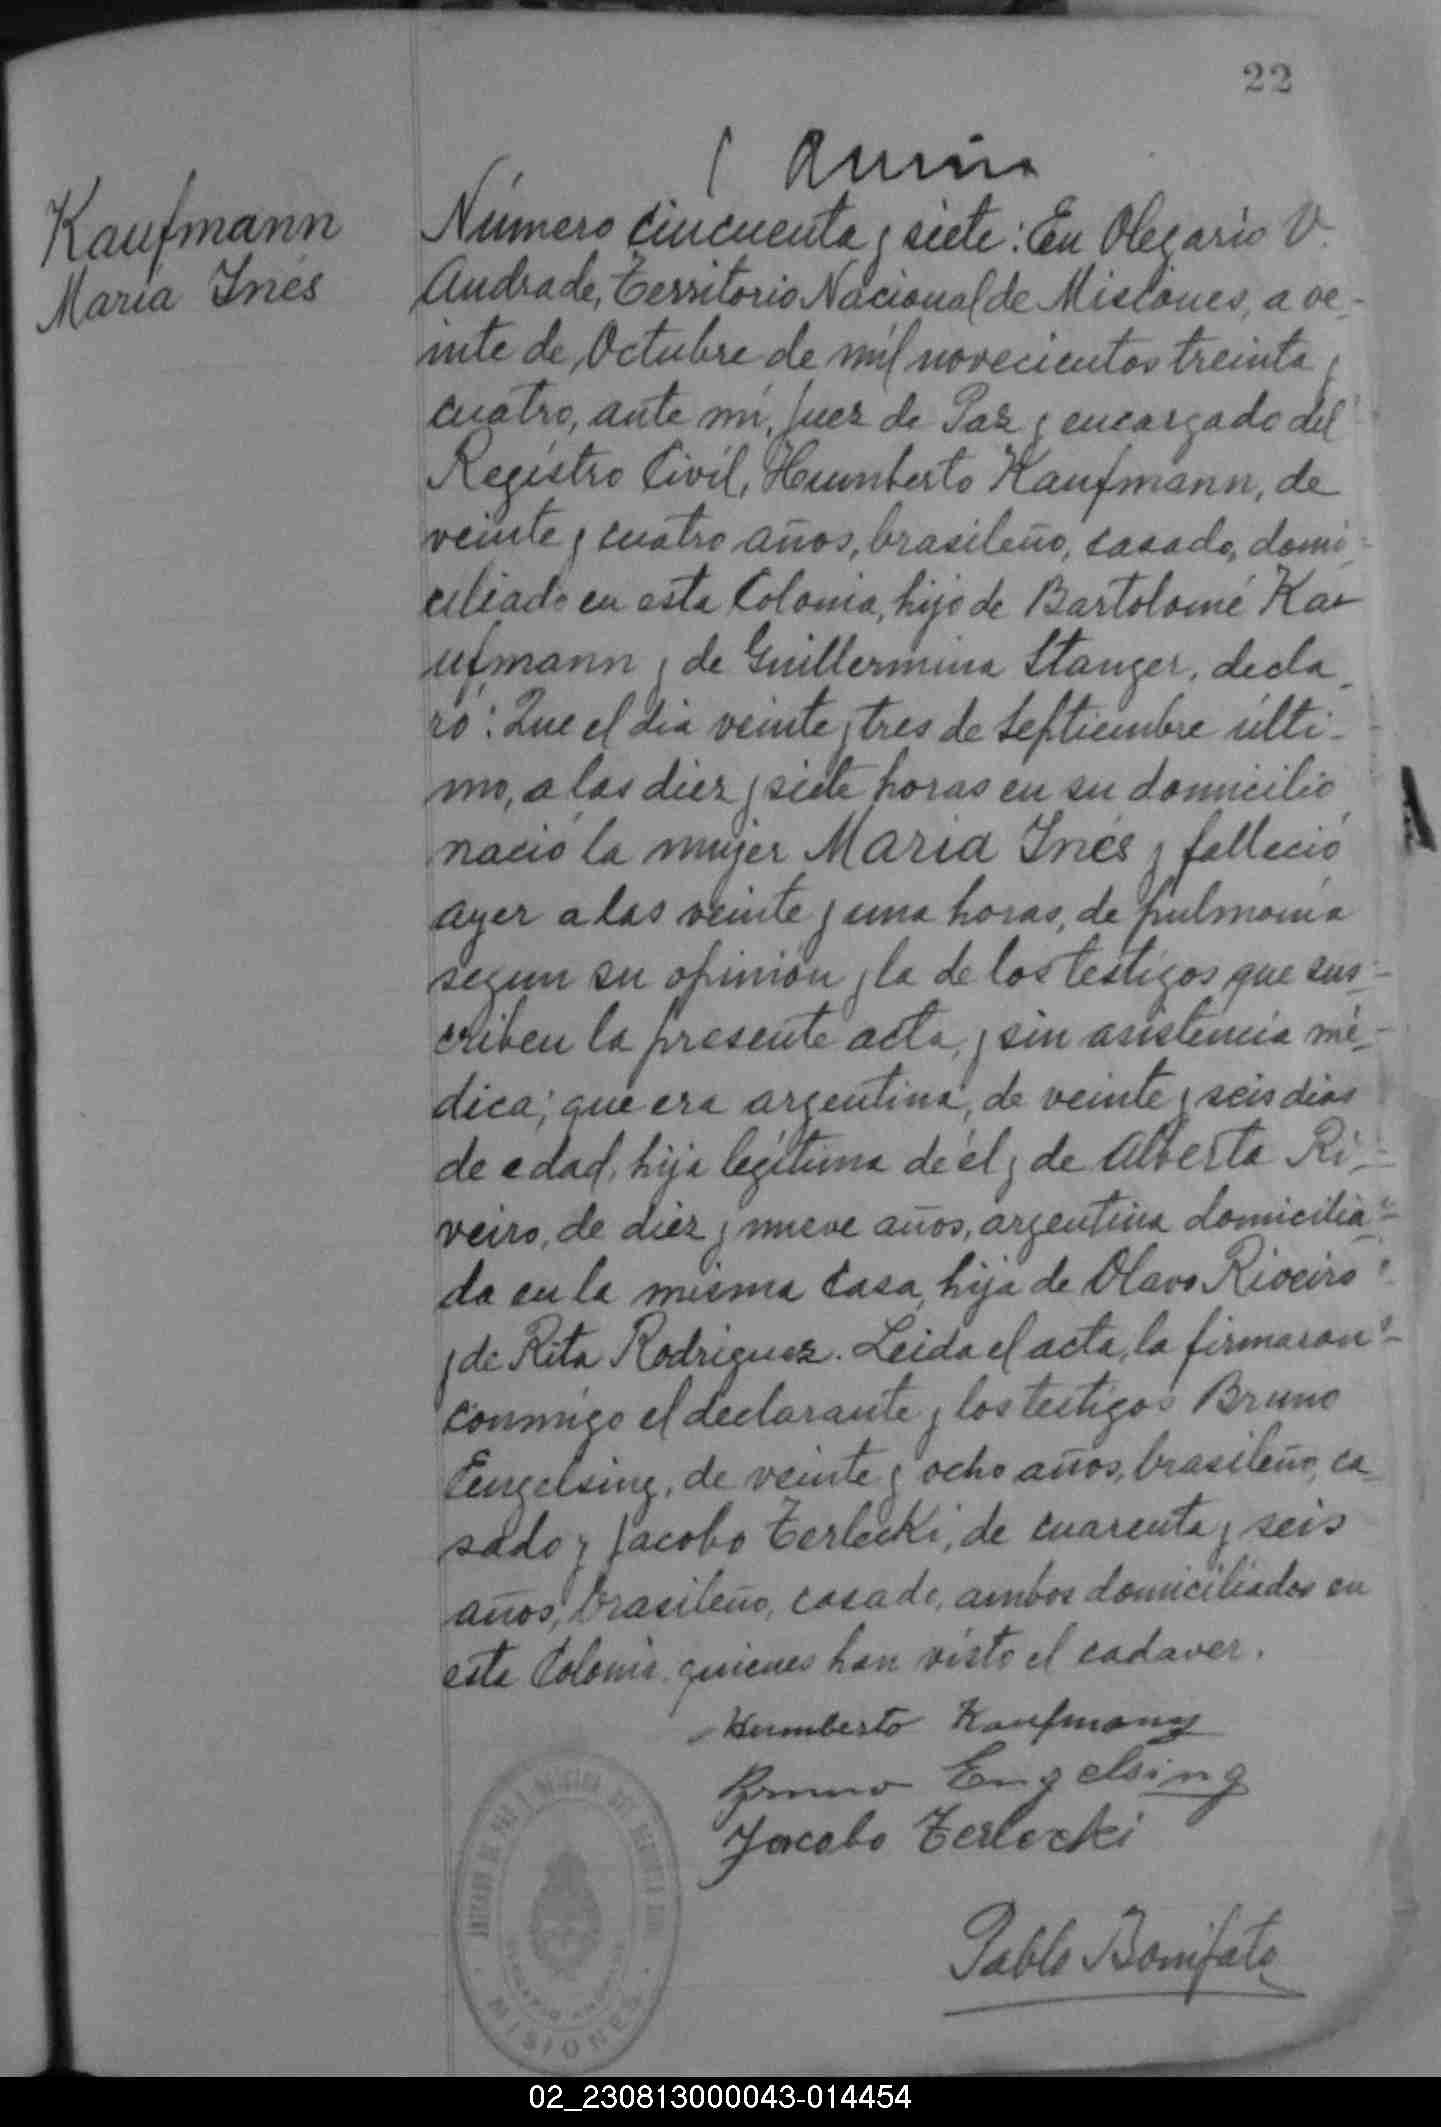 22
Kaufmann
María Inés
Número cincuenta y siete: En Olegario V.
Andrade, Territorio Nacional de Misiones, a ve-
inte de Octubre de mil novecientos treinta y
cuatro, ante mí, Juez de Paz y encargado del
Registro Civil, Humberto Kaufmann, de
veinte y cuatro años, brasileño, casado, domi-
ciliado en esta Colonia, hijo de Bartolomé Ka-
ufmann y de Guillermina Stanger, decla-
ró: Que el día veinte y tres de Septiembre últi-
mo, a las diez y siete horas en su domicilio
nació la mujer María Inés y falleció
ayer a las veinte y una horas, de pulmonía
segun su opinión y la de los testigos que sus-
criben la presente acta, y sin asistencia mé-
dica; que era argentina, de veinte y seis dias
de edad, hija legítima de él y de Alberta Ri-
veiro, de diez y nueve años, argentina domicilia-
da en la misma casa, hija de Olavo Riveiro
y de Rita Rodriguez. Leida el acta, la firmaron
conmigo el declarante y los testigos Bruno
Eengelsing, de veinte y ocho años, brasileño, ca-
sado y Jacobo Terlecki, de cuarenta y seis
años, brasileño, casado, ambos domiciliados en
esta Colonia quienes han visto el cadaver.
Humberto Kaufmann
Bruno Engelsing
Jacobo Terlecki
Pablo Bonifato
MISIONES
02_230813000043-014454